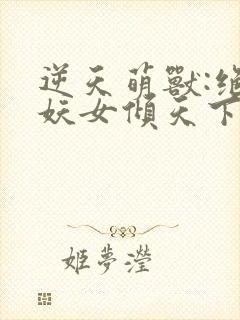 逆天萌獸:絕
妖女傾天下
姬夢瀅